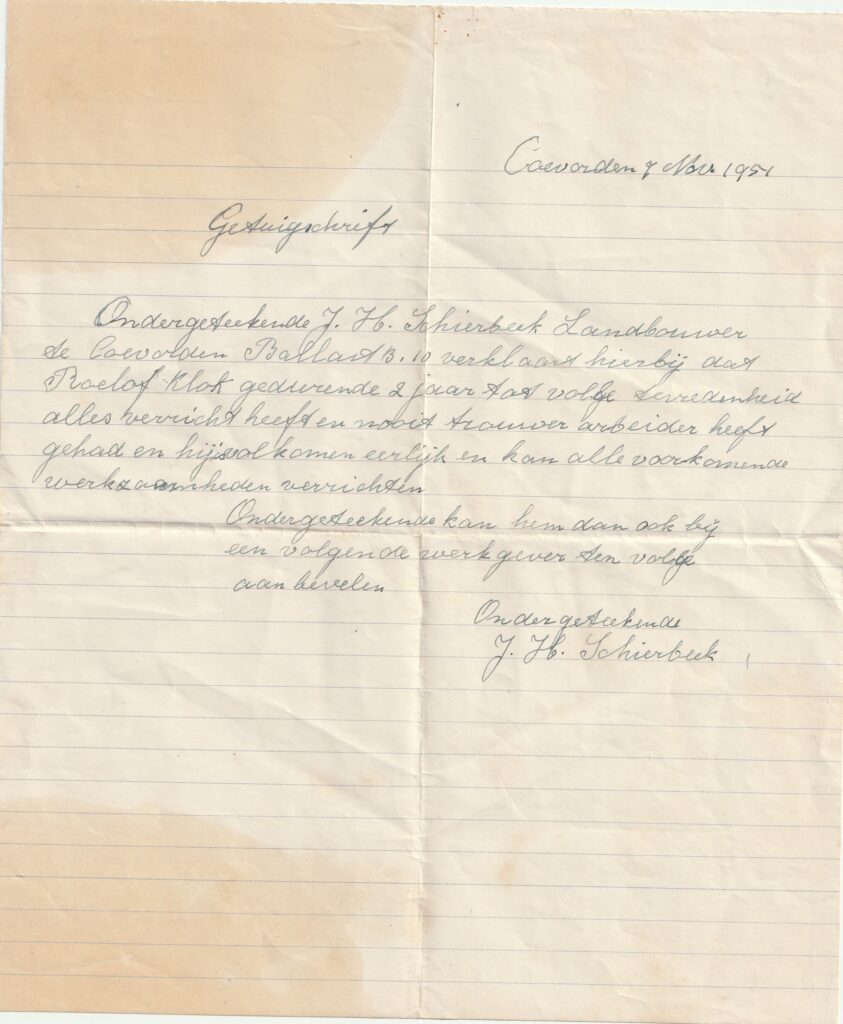 Coevorden 7 Nov 1951
Getuigschrift
Ondergeteekende J. H. Schierbeek Landbouwer
te Coevorden Ballast B. 10 verklaart hierbij dat
Roelof Klok gedurende 2 jaar tot volge tevredenheid
alles verricht heeft en nooit trouwer arbeider heeft
gehad en hij is volkomen eerlijk en kan alle voorkomende
werkzaamheden verrichten
Ondergeteekende kan hem dan ook bij
een volgende werkgever ten volge
aanbevelen
Ondergeteekende
J. H. Schierbeek